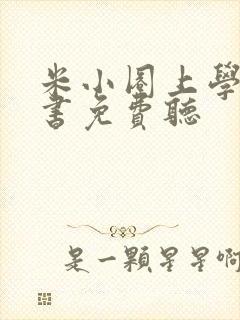 米小圈上學
書免費聽
是一顆星星啊